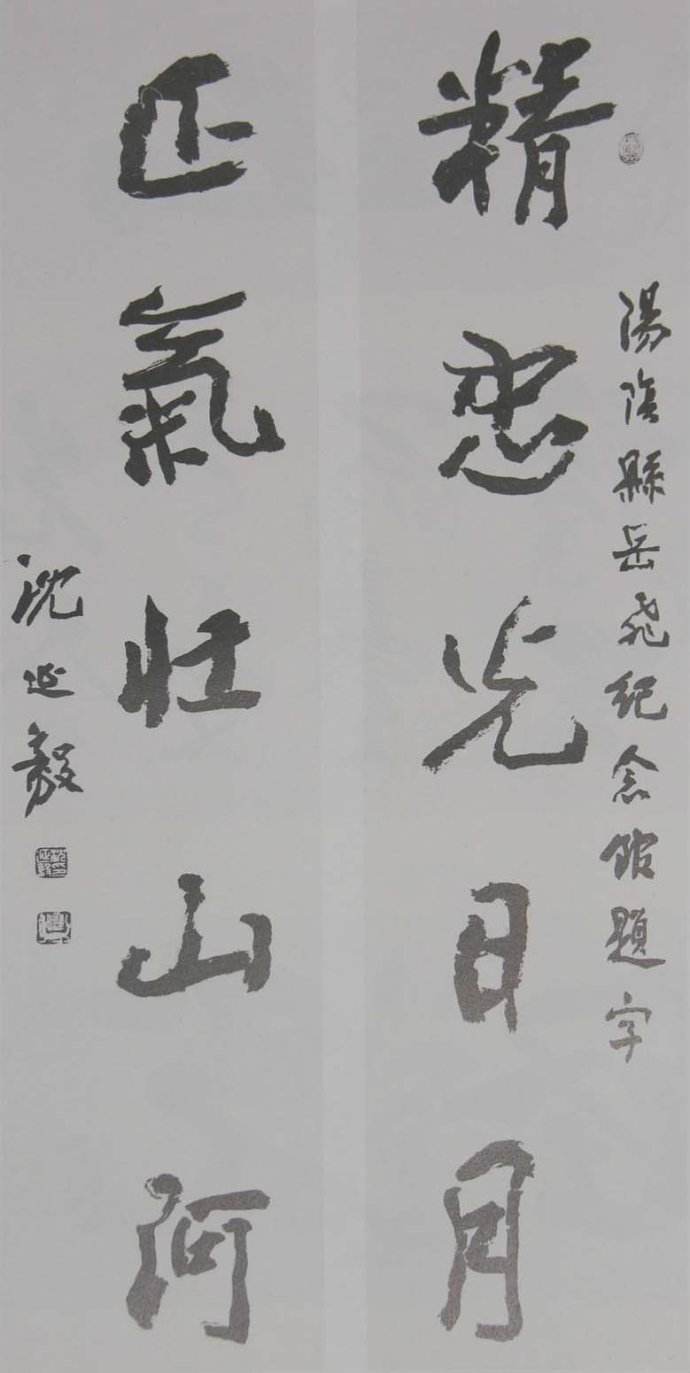 湯陰縣岳飛紀念館題字
精忠光日月
正氣壯山河
沈延毅